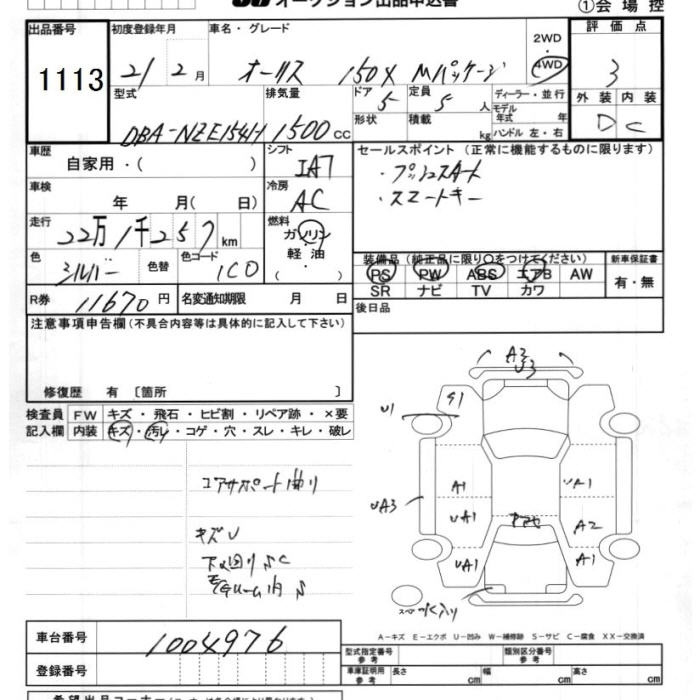 オークション出品申込書
①会場控
出品番号 初度登録年月 車名・グレード 2WD 評価点
1113 21年 2月 オーリス 150X Mパッケージ 4WD 3
型式 排気量 ドア 定員 ディーラー・並行 外装 内装
DBA-NZE154H 1500cc 5 5人 モデル年式 年 D C
形状 積載 kg ハンドル 左・右
車歴 シフト セールスポイント (正常に機能するものに限ります)
自家用・( ) IAT ・プッシュスタート
車検 冷房 ・スマートキー
年 月( 日) AC
走行 燃料
22万1千257km ガソリン・軽油・
色 色替 色コード 装備品 (純正品に限り○をつけてください) 新車保証書
シルバー 1C0 PS PW ABS エアB AW 有・無
SR ナビ TV カワ
R券 11670円 名変通知期限 月 日 後日品
注意事項申告欄(不具合内容等は具体的に記入して下さい)
修復歴 有 〔箇所 〕
検査員 FW キズ・飛石・ヒビ割・リペア跡・×要
記入欄 内装 キズ・汚れ・コゲ・穴・スレ・キレ・破レ
A3
U3
S1
U1
コアサポート曲り
A1 UA1
UA3
UA1 A2
キズU
下回りSC
UA1 A1
A-キズ E-エクボ U-凹み W-補修跡 S-サビ C-腐食 XX-交換済
車台番号 1004976
型式指定番号 参考 類別区分番号 参考
登録番号 車庫証明用 参考 長さ cm 幅 cm 高さ cm
希望出品コーナー